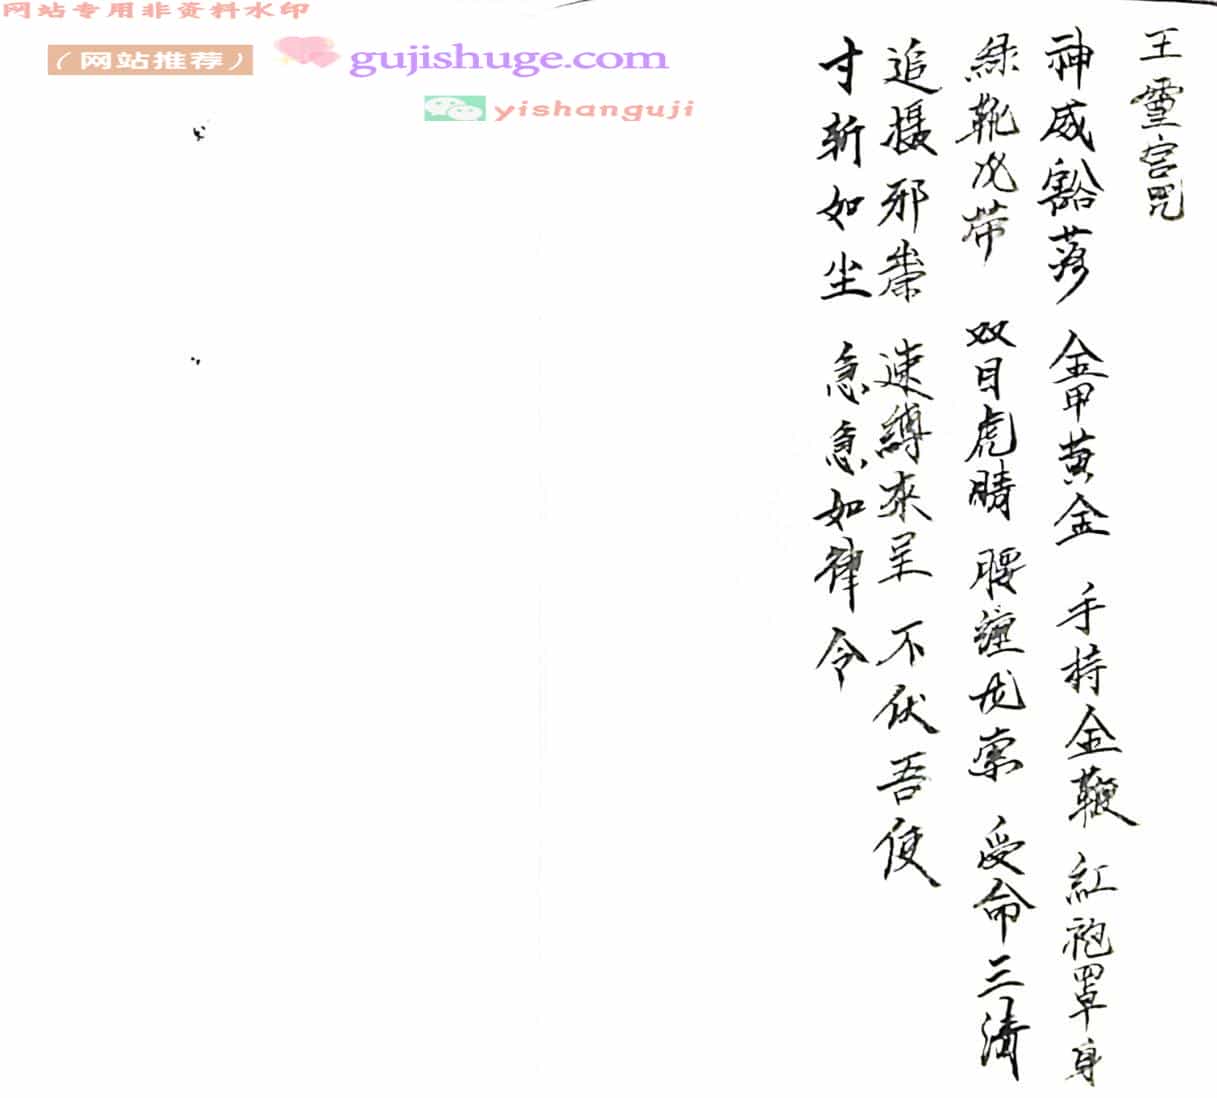 网站专用非资料水印
（网站推荐）
gujishuge.com
yishanguji
王靈官咒
神威豁落 金甲黄金 手持金鞭 紅袍罩身
綠靴风带 双目虎睛 腰缠龙索 受命三清
追摄邪祟 速縛來呈 不伏吾使
寸斩如尘 急急如律令